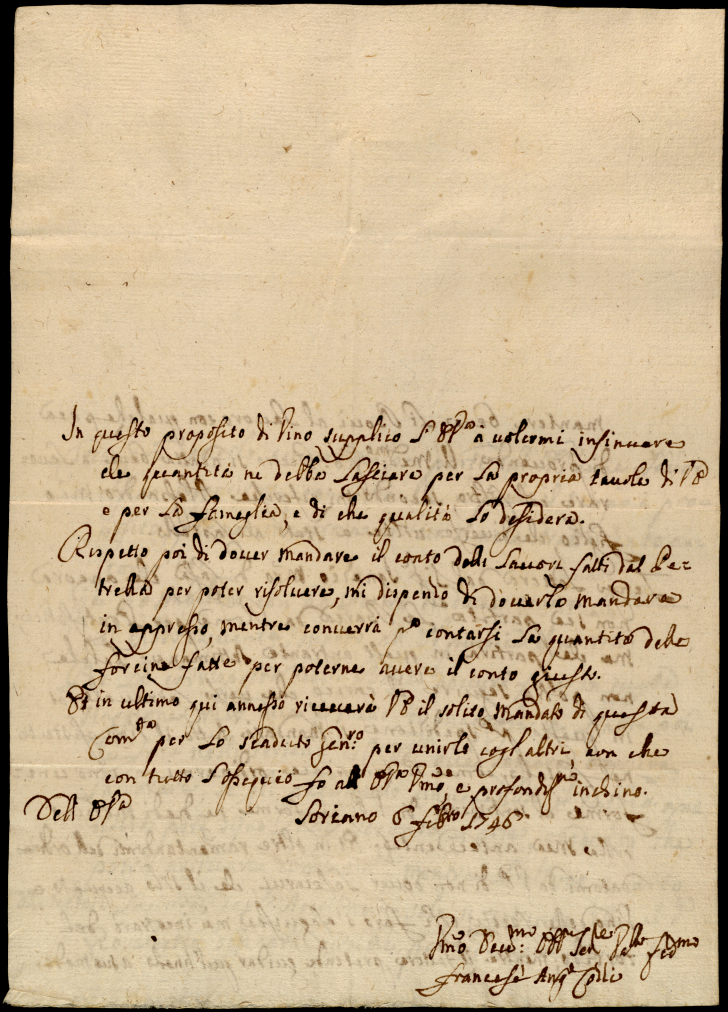 In questo proposito di Vino supplico l'E. V. à volermi insinuare
che quantità ne debba lasciare per la propria tavola di V. E.
e per la fameglia, e di che qualità lo desidera.
Rispetto poi di dover mandare il conto delli lavori fatti dal Pe=
trella per poter risolvere, mi dispendo di doverlo mandare
in appresso, mentre converrà pº contarsi la quantità delle
forcine fatte per poterne avere il conto giusto.
Et in ultimo qui annesso riceverà V. E. il solito mandato di questa
Com.tà per lo scaduto Gen.ro per unirlo cogl'altri, con che
con tutto l'ossequio fo all' e profondis.mo inchino.
Dell'
Soriano 6 febro 1746
Dev.mo Obb.
Francesc Ang.